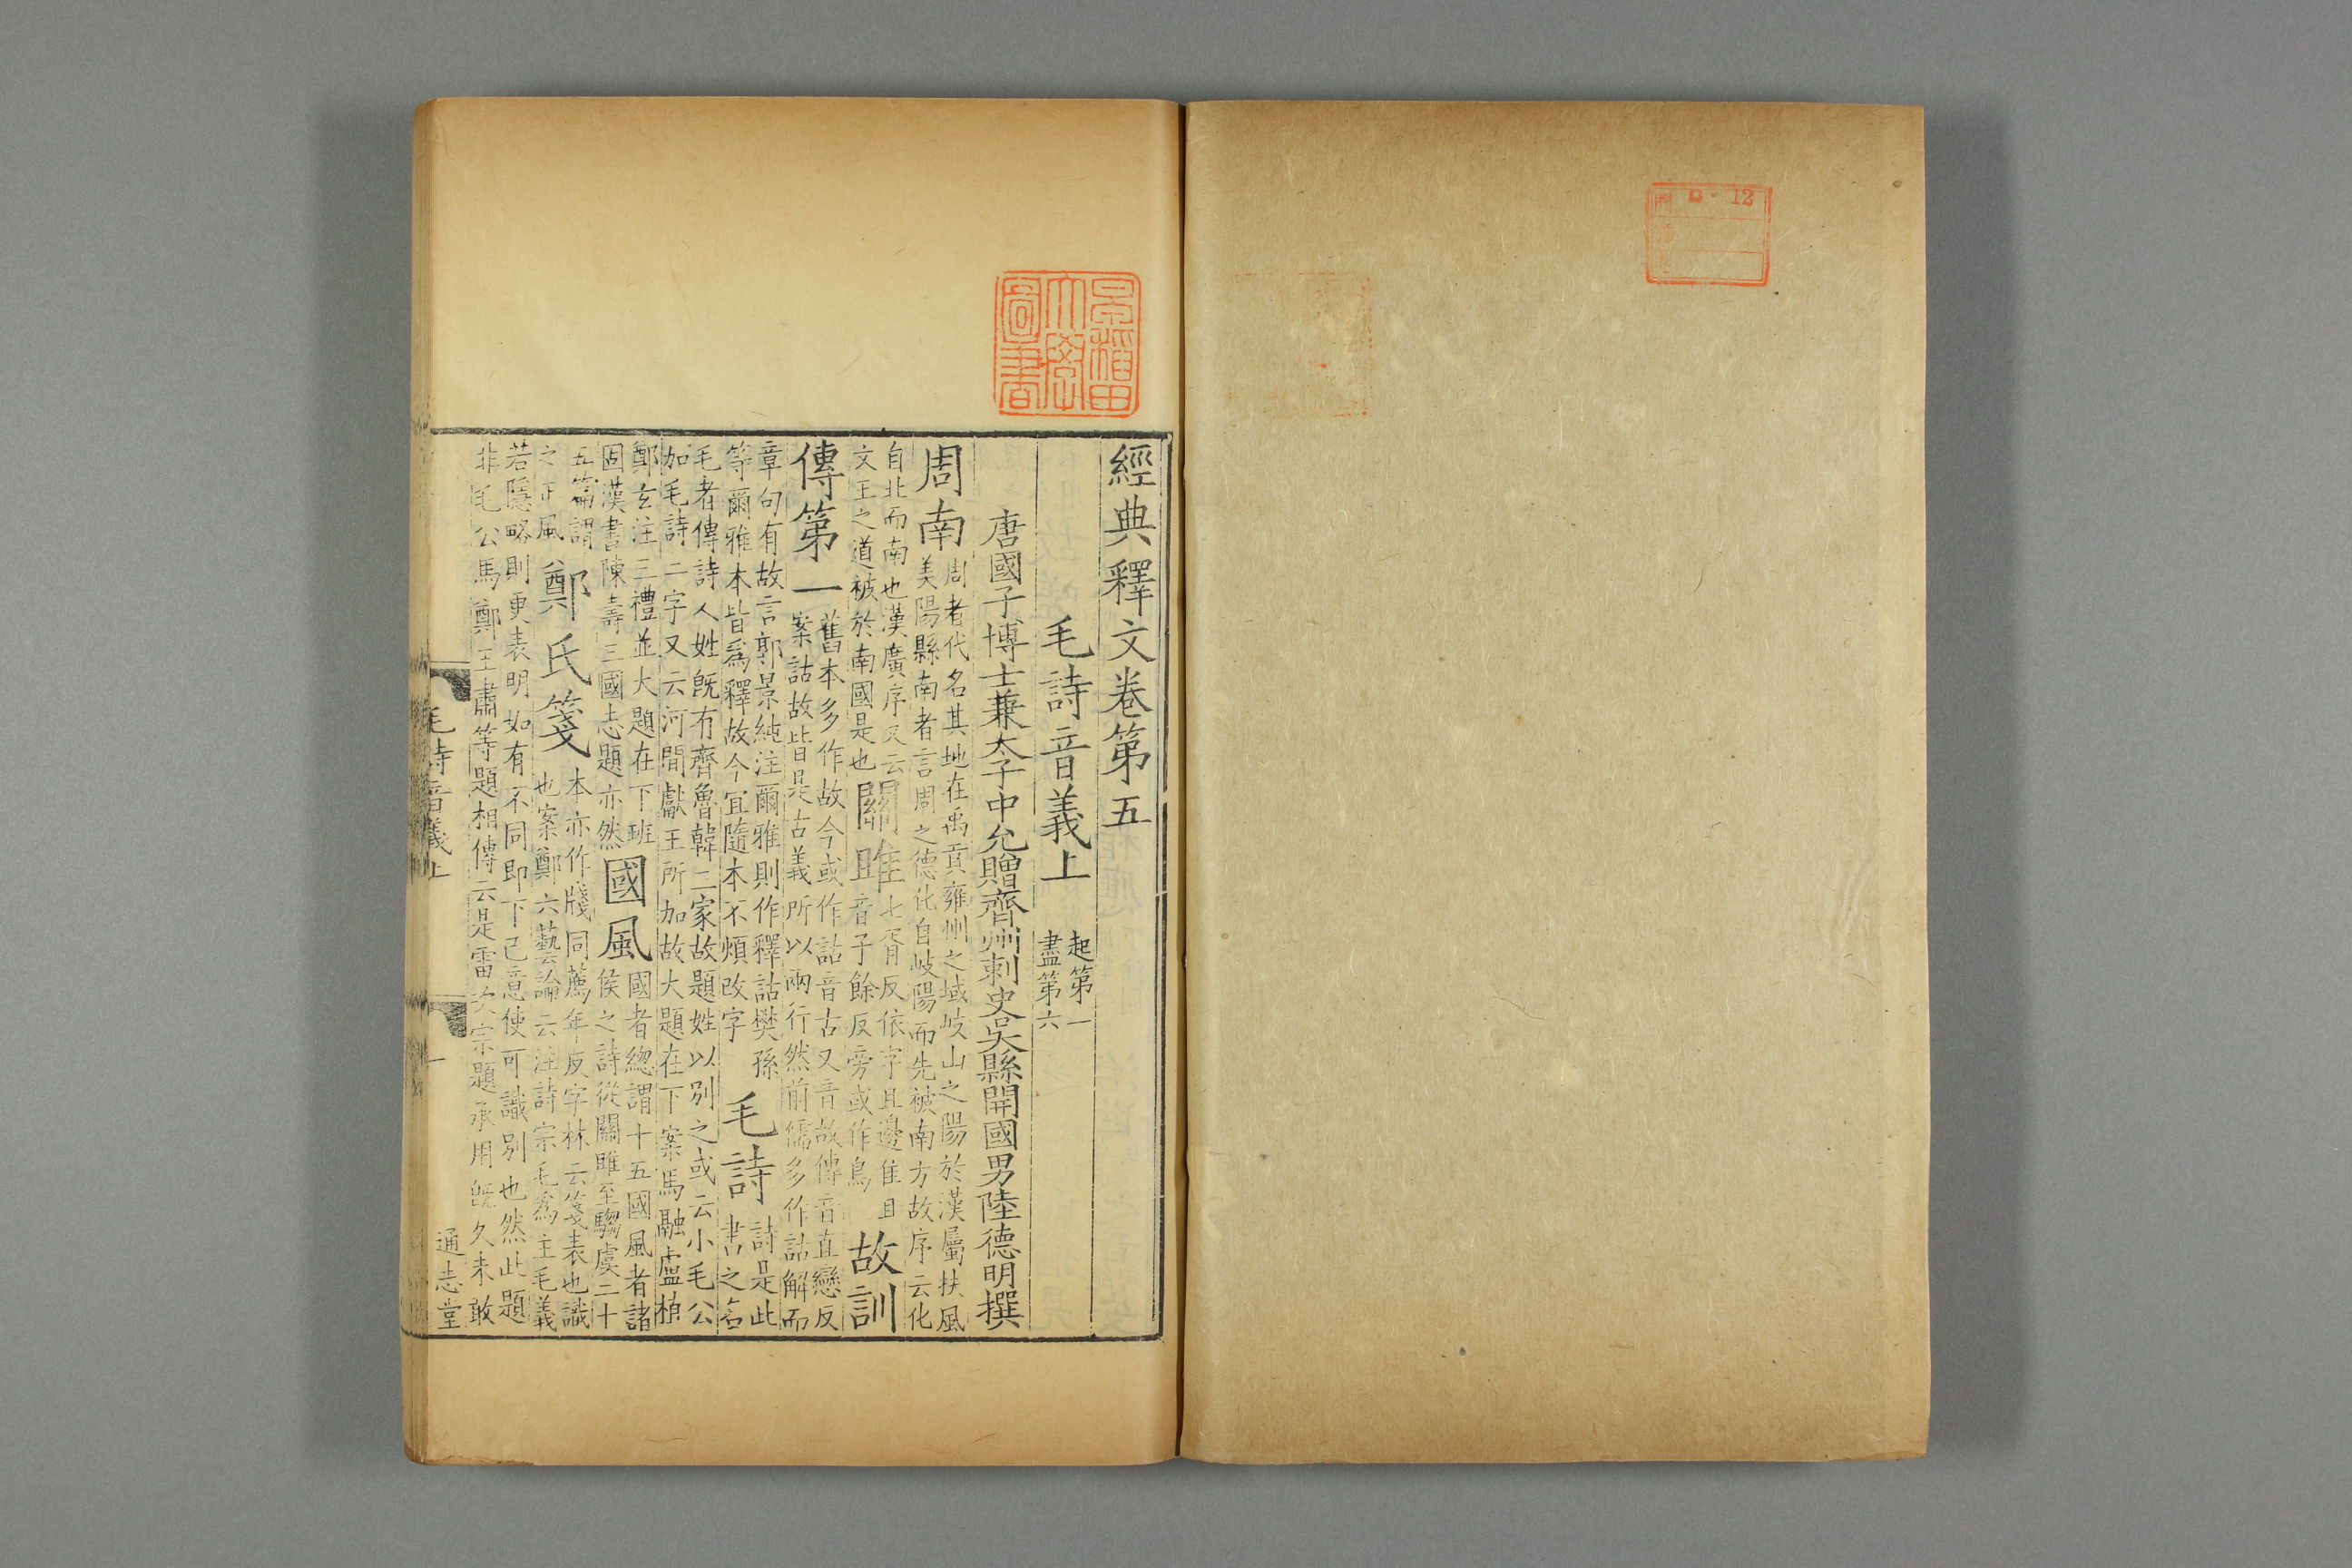 經典釋文卷第五
毛詩音義上
起第一
盡第六
唐國子博士兼太子中允贈齊州刺史吳縣開國男陸德明撰
周南
周者代名其地在禹貢雍州之域岐山之陽於漢屬扶風
美陽縣南者言周之德化自岐陽而先被南方故序云化
自北而南也漢廣序又云
文王之道被於南國是也
關雎
七胥反依字且邊隹且
音子餘反旁或作鳥
故訓
傳第一
舊本多作故今或作詁音古又音故傳音直戀反
案詁故皆是古義所以兩行然前儒多作詁解而
章句有故言郭景純注爾雅則作釋詁樊孫
等爾雅本皆為釋故今宜隨本不煩改字
毛詩
詩是此
書之名
毛者傳詩人姓既有齊魯韓三家故題姓以別之或云小毛公
加毛詩二字又云河間獻王所加故大題在下案馬融盧植
鄭玄注三禮並大題在下班
固漢書陳壽三國志題亦然
國風
國者總謂十五國風者諸
侯之詩從關雎至騶虞二十
五篇謂
之正風
鄭氏箋
本亦作牋同薦年反字林云箋表也識
也案鄭六藝論云注詩宗毛為主毛義
若隱略則更表明如有不同即下己意使可識別也然此題
非毛公馬鄭王肅等題相傳云是雷次宗題承用既久未敢
毛詩音義上
一
通志堂
早稻田
大學
圖書
12